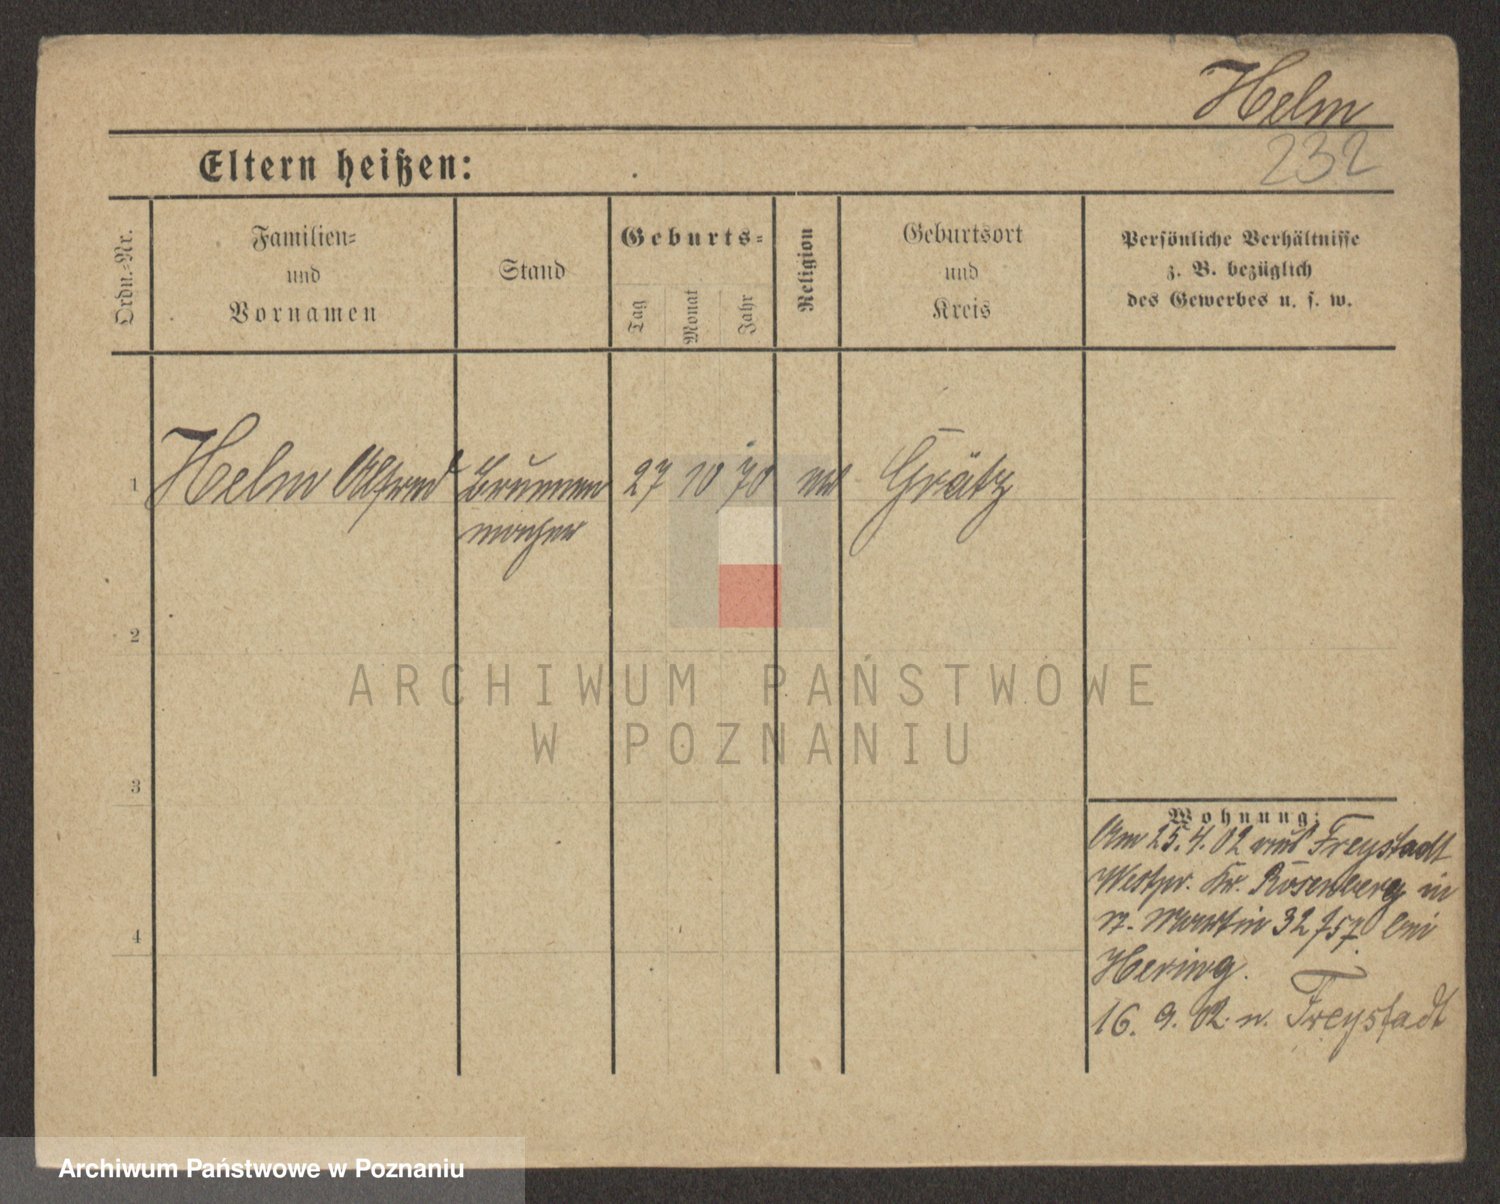 Helm
232
Eltern heißen:
Ordn.-Nr.
Familien-
und
Vornamen
Stand
Geburts-
Tag
Monat
Jahr
Religion
Geburtsort
und
Kreis
Persönliche Verhältnisse
z. B. bezüglich
des Gewerbes u. s. w.
1 Helm Alfred Brunnen 27 10 70 Grätz
macher
2
3
4
Wohnung:
Am 25.4.02 aus Freystadt
Westpr. Kr. Rosenberg in
St. Martin 32 bei
Hering.
16. 9. 02. n. Freystadt
ARCHIWUM PAŃSTWOWE
W POZNANIU
Archiwum Państwowe w Poznaniu